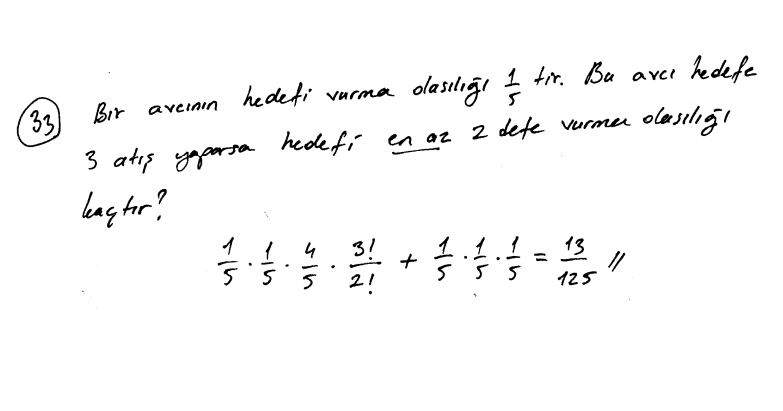 33 Bir avcının hedefi vurma olasılığı 1/5 tir. Bu avcı hedefe
3 atış yaparsa hedefi en az 2 defa vurma olasılığı
kaçtır?
1/5 . 1/5 . 4/5 . 3!/2! + 1/5 . 1/5 . 1/5 = 13/125 //